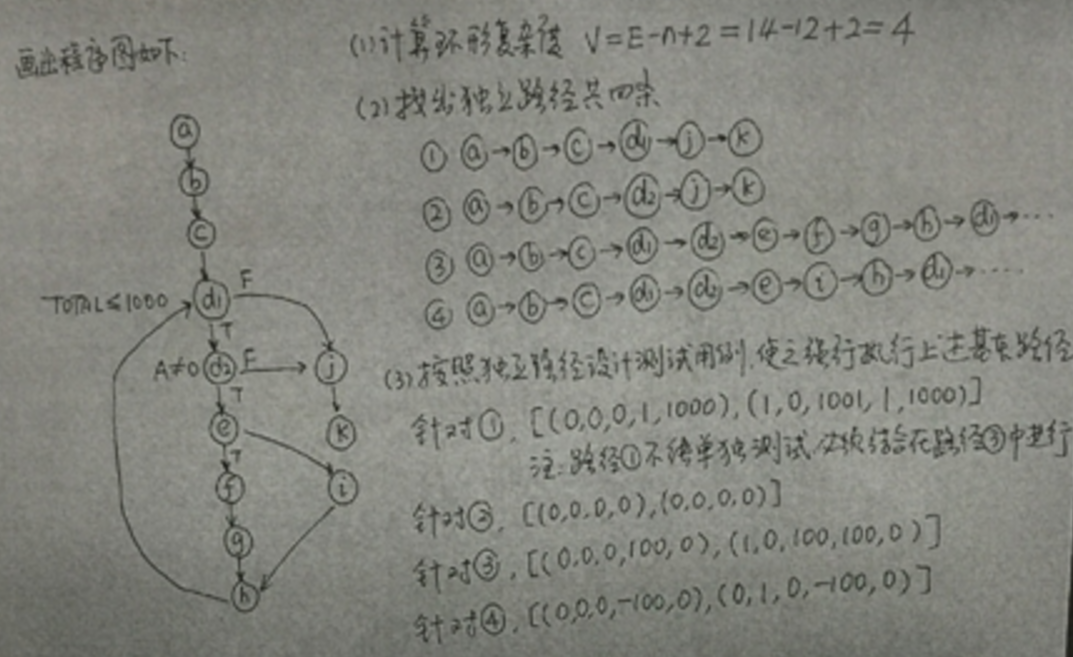 画出程序图如下:
a
b
c
TOTAL≤1000 d₁ F
T
A≠0 d₂ F j
T
e k
T
f i
g
h
(1)计算环形复杂度 V=E-n+2=14-12+2=4
(2)找出独立路径共四条
① a→b→c→d₁→j→k
② a→b→c→d₂→j→k
③ a→b→c→d₁→d₂→e→f→g→h→d₁→…
④ a→b→c→d₁→d₂→e→i→h→d₁→……
(3)按照独立路径设计测试用例,使之强行执行上述基本路径
针对①, [(0,0,0,1,1000),(1,0,1001,1,1000)]
注:路径①不能单独测试,必须结合在路径③中进行
针对②, [(0,0,0,0),(0,0,0,0)]
针对③, [(0,0,0,100,0),(1,0,100,100,0)]
针对④, [(0,0,0,-100,0),(0,1,0,-100,0)]